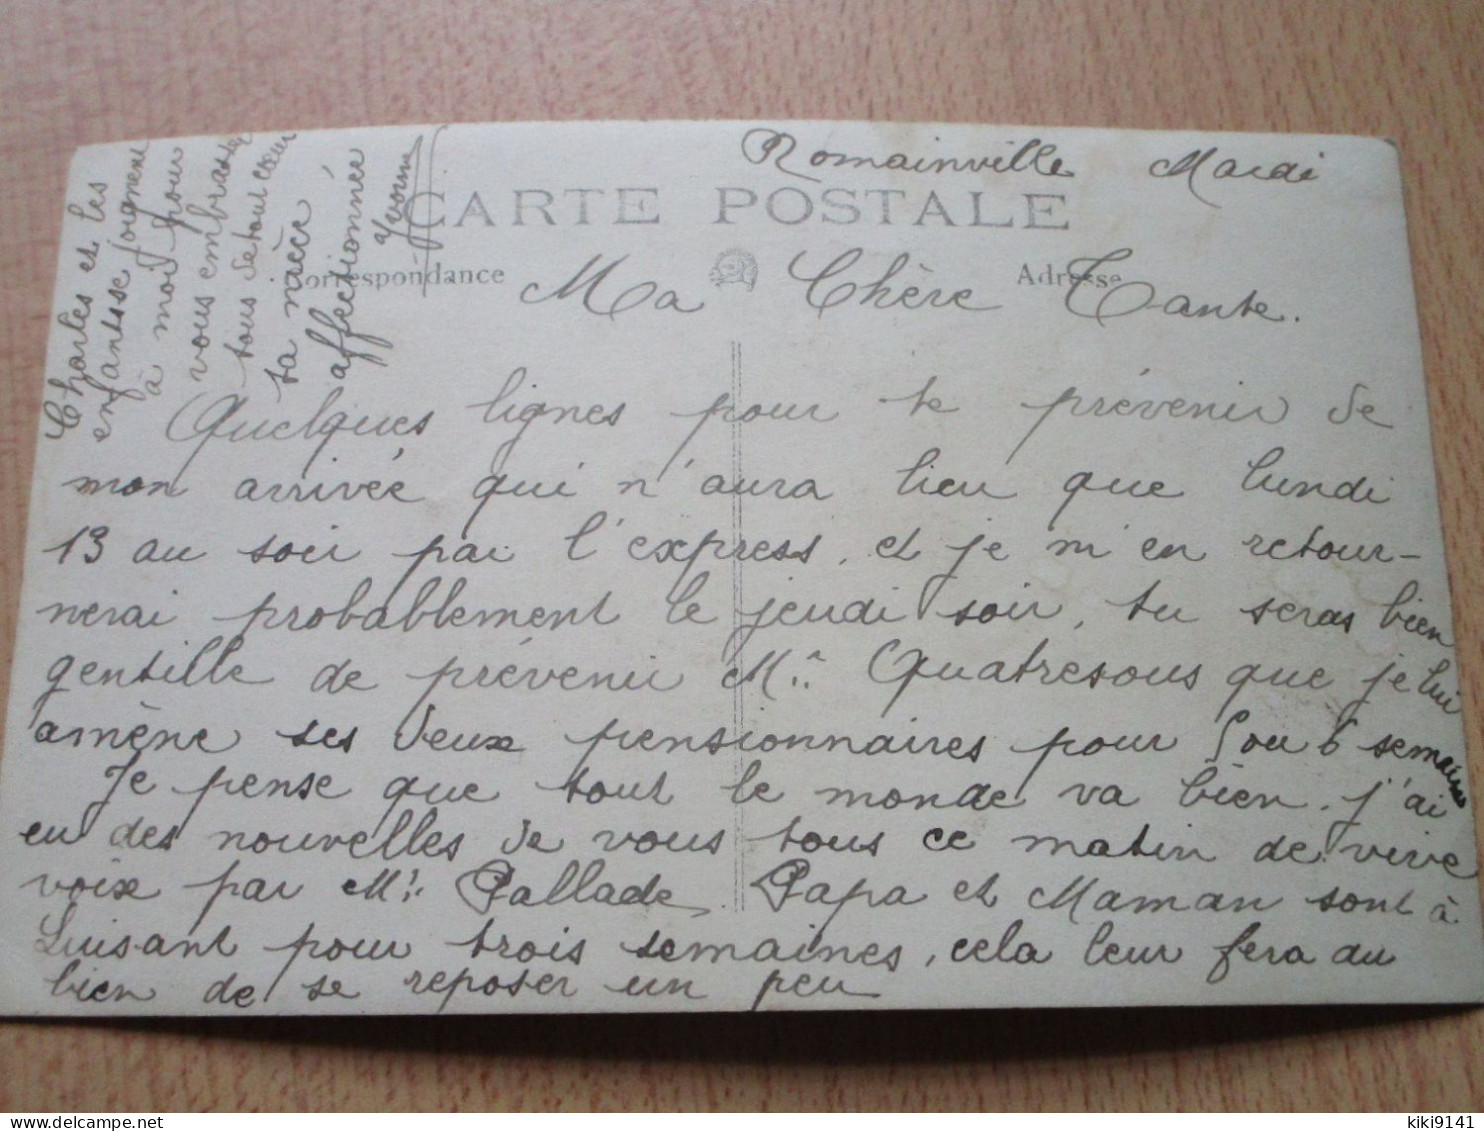 Romainville Mardi
CARTE POSTALE
Correspondance
Adresse
Ma Chère Tante.
Quelques lignes pour te prévenir de
mon arrivée qui n'aura lieu que lundi
13 au soir par l'express, et je m'en retour-
nerai probablement le jeudi soir, tu seras bien
gentille de prévenir Mr. Quatresous que je lui
amène ses deux pensionnaires pour 5 ou 6 semaines
Je pense que tout le monde va bien. j'ai
eu des nouvelles de vous tous ce matin de vive
voix par Mr. Pallade. Papa et Maman sont à
Luisant pour trois semaines, cela leur fera du
bien de se reposer un peu
Charles et les
enfants se joignent
à moi pour
vous embrasser
tous de tout cœur
ta nièce
affectionnée
Yvonne
kiki9141